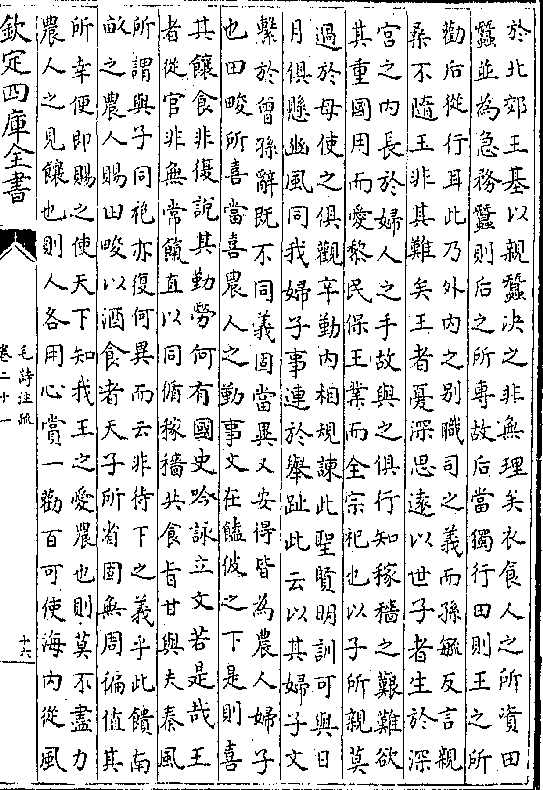 於北郊王基以親蠶決之非無理矣衣食人之所資田
蠶並為急務蠶則后之所專故后當獨行田則王之所
勸后從行耳此乃外内之别職司之義而孫毓反言親
桑不隨王非其難矣王者憂深思遠以世子者生於深
宮之内長於婦人之手故與之俱行知稼穡之艱難欲
其重國用而愛黎民保王業而全宗祀也以子所親莫
過於母使之俱觀辛勤内相規諫此聖賢明訓可與日
月俱懸豳風同我婦子事連於舉趾此云以其婦子文
繫於曾孫辭既不同義固當異又安得皆為農人婦子
也田畯所喜當喜農人之勤事文在饁彼之下是則喜
其饟食非復說其勤勞何有國史吟詠立文若是哉王
者從官非無常直以同循稼穡共食旨甘與夫秦風
所謂與子同袍亦復何異而云非待下之義乎此饋南
畝之農人賜田畯以酒食者天子所省固無周徧值其
所幸便即賜之使天下知我王之愛農也則莫不盡力
農人之見饟也則人各用心賞一勸百可使海内從風
欽定四庫全書
毛詩注疏
卷二十一
十六